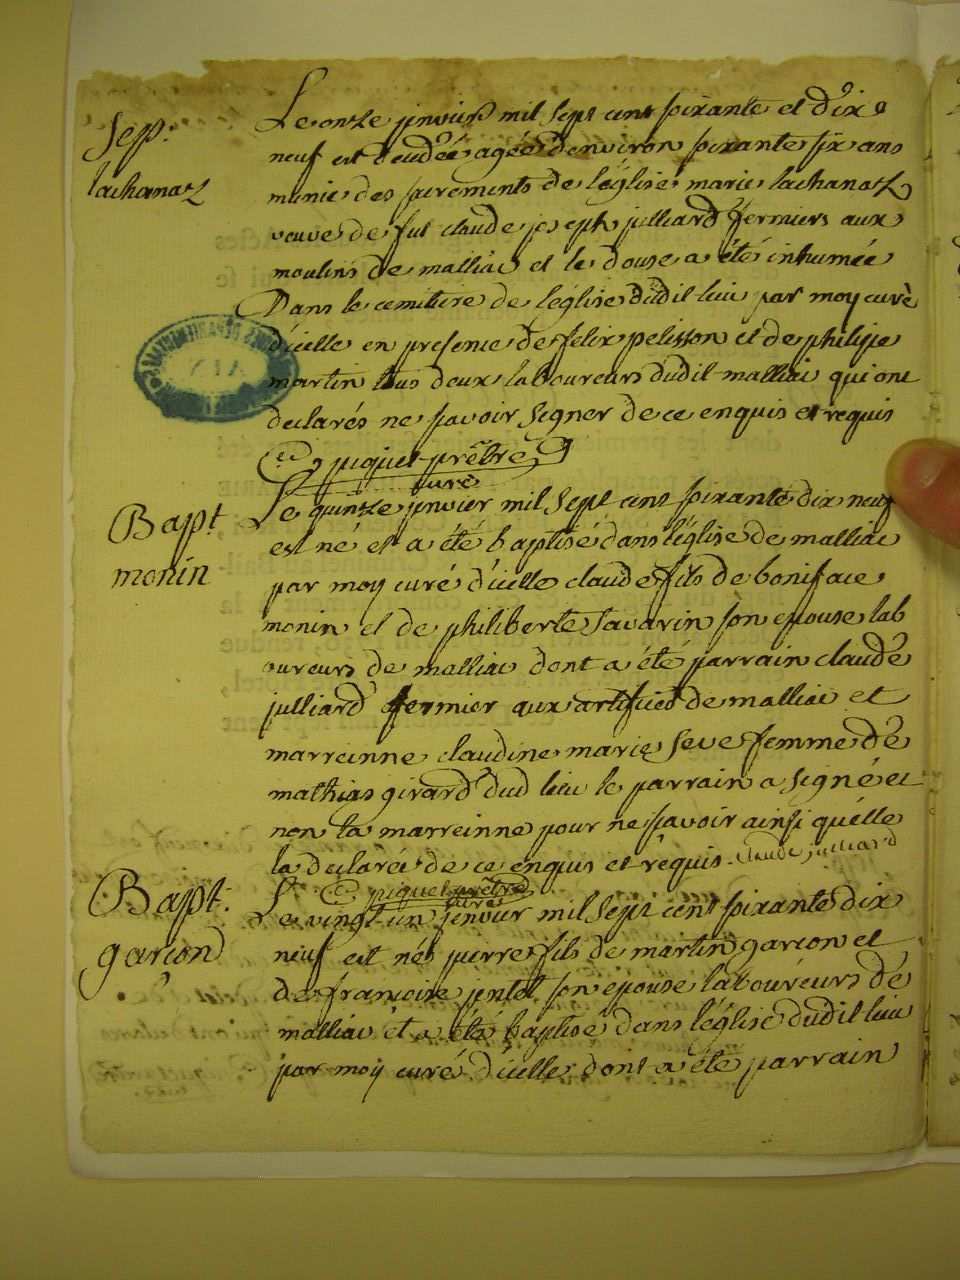 Sep.
lachanatz
Le onze janvier mil sept cent soixante et dix
neuf est decedée agée denviron soixante six ans
munie des sacrements de léglise marie lachanatz
veuve de fut claude joseph julliard fermiers aux
moulins de malliac et le douse a été inhumée
Dans le cemitiere de léglise dudit lieu par moy curé
dicelle en presence de felix pelisson et de philipe
martin tous deux laboureurs dudit malliac qui ont
declarés ne savoir signer de ce enquis et requis
piquet prêtre
curé
Bapt
monin
Le quinze janvier mil sept cent soixante dix neuf
est né et a été baptisé dans léglise de malliac
par moy curé dicelle claude fils de boniface
monin et de philiberte savarin son epouse lab
oureurs de malliac dont a été parrain claude
julliard fermier aux artifices de malliac et
marreinne claudine marie seve femme de
mathias girard dud lieu le parrain a signé et
non la marreinne pour ne savoir ainsi quélle
la declaréé de ce enquis et requis claude julliard
piquet prêtre
curé
Bapt:
garcon
Le vingt un janvier mil sept cent soixante dix
neuf est né pierre fils de martin garcon et
de francoise jentet son epouse laboureurs de
malliac et a été baptisé dans léglise dudit lieu
par moy curé dicelle dont a été parrain